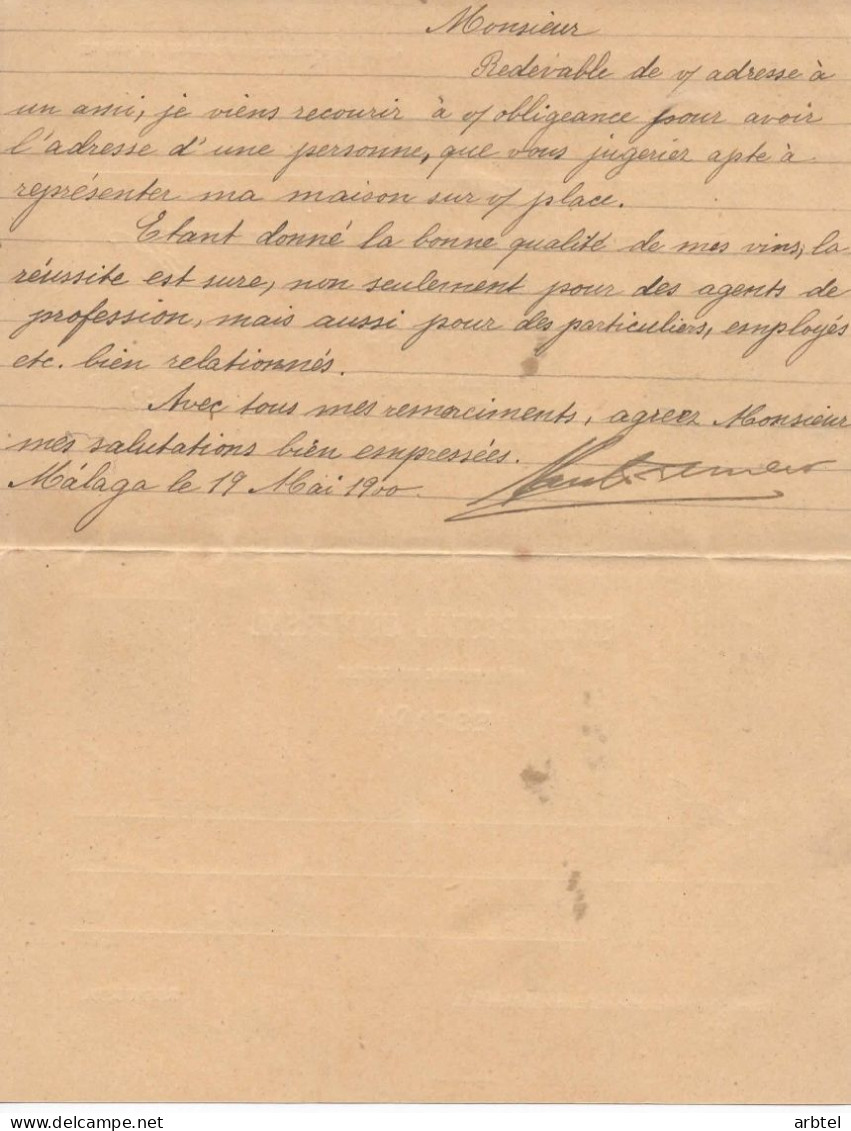 Monsieur
Redevable de v/ adresse à
un ami, je viens recourir à v/ obligeance pour avoir
l'adresse d'une personne, que vous jugeriez apte à
représenter ma maison sur v/ place.
Etant donné la bonne qualité de mes vins, la
réussite est sure, non seulement pour des agents de
profession, mais aussi pour des particuliers, employés
etc. bien relationnés.
Avec tous mes remerciments, agreez Monsieur
mes salutations bien empressées.
Málaga le 19 Mai 1900.
arbtel